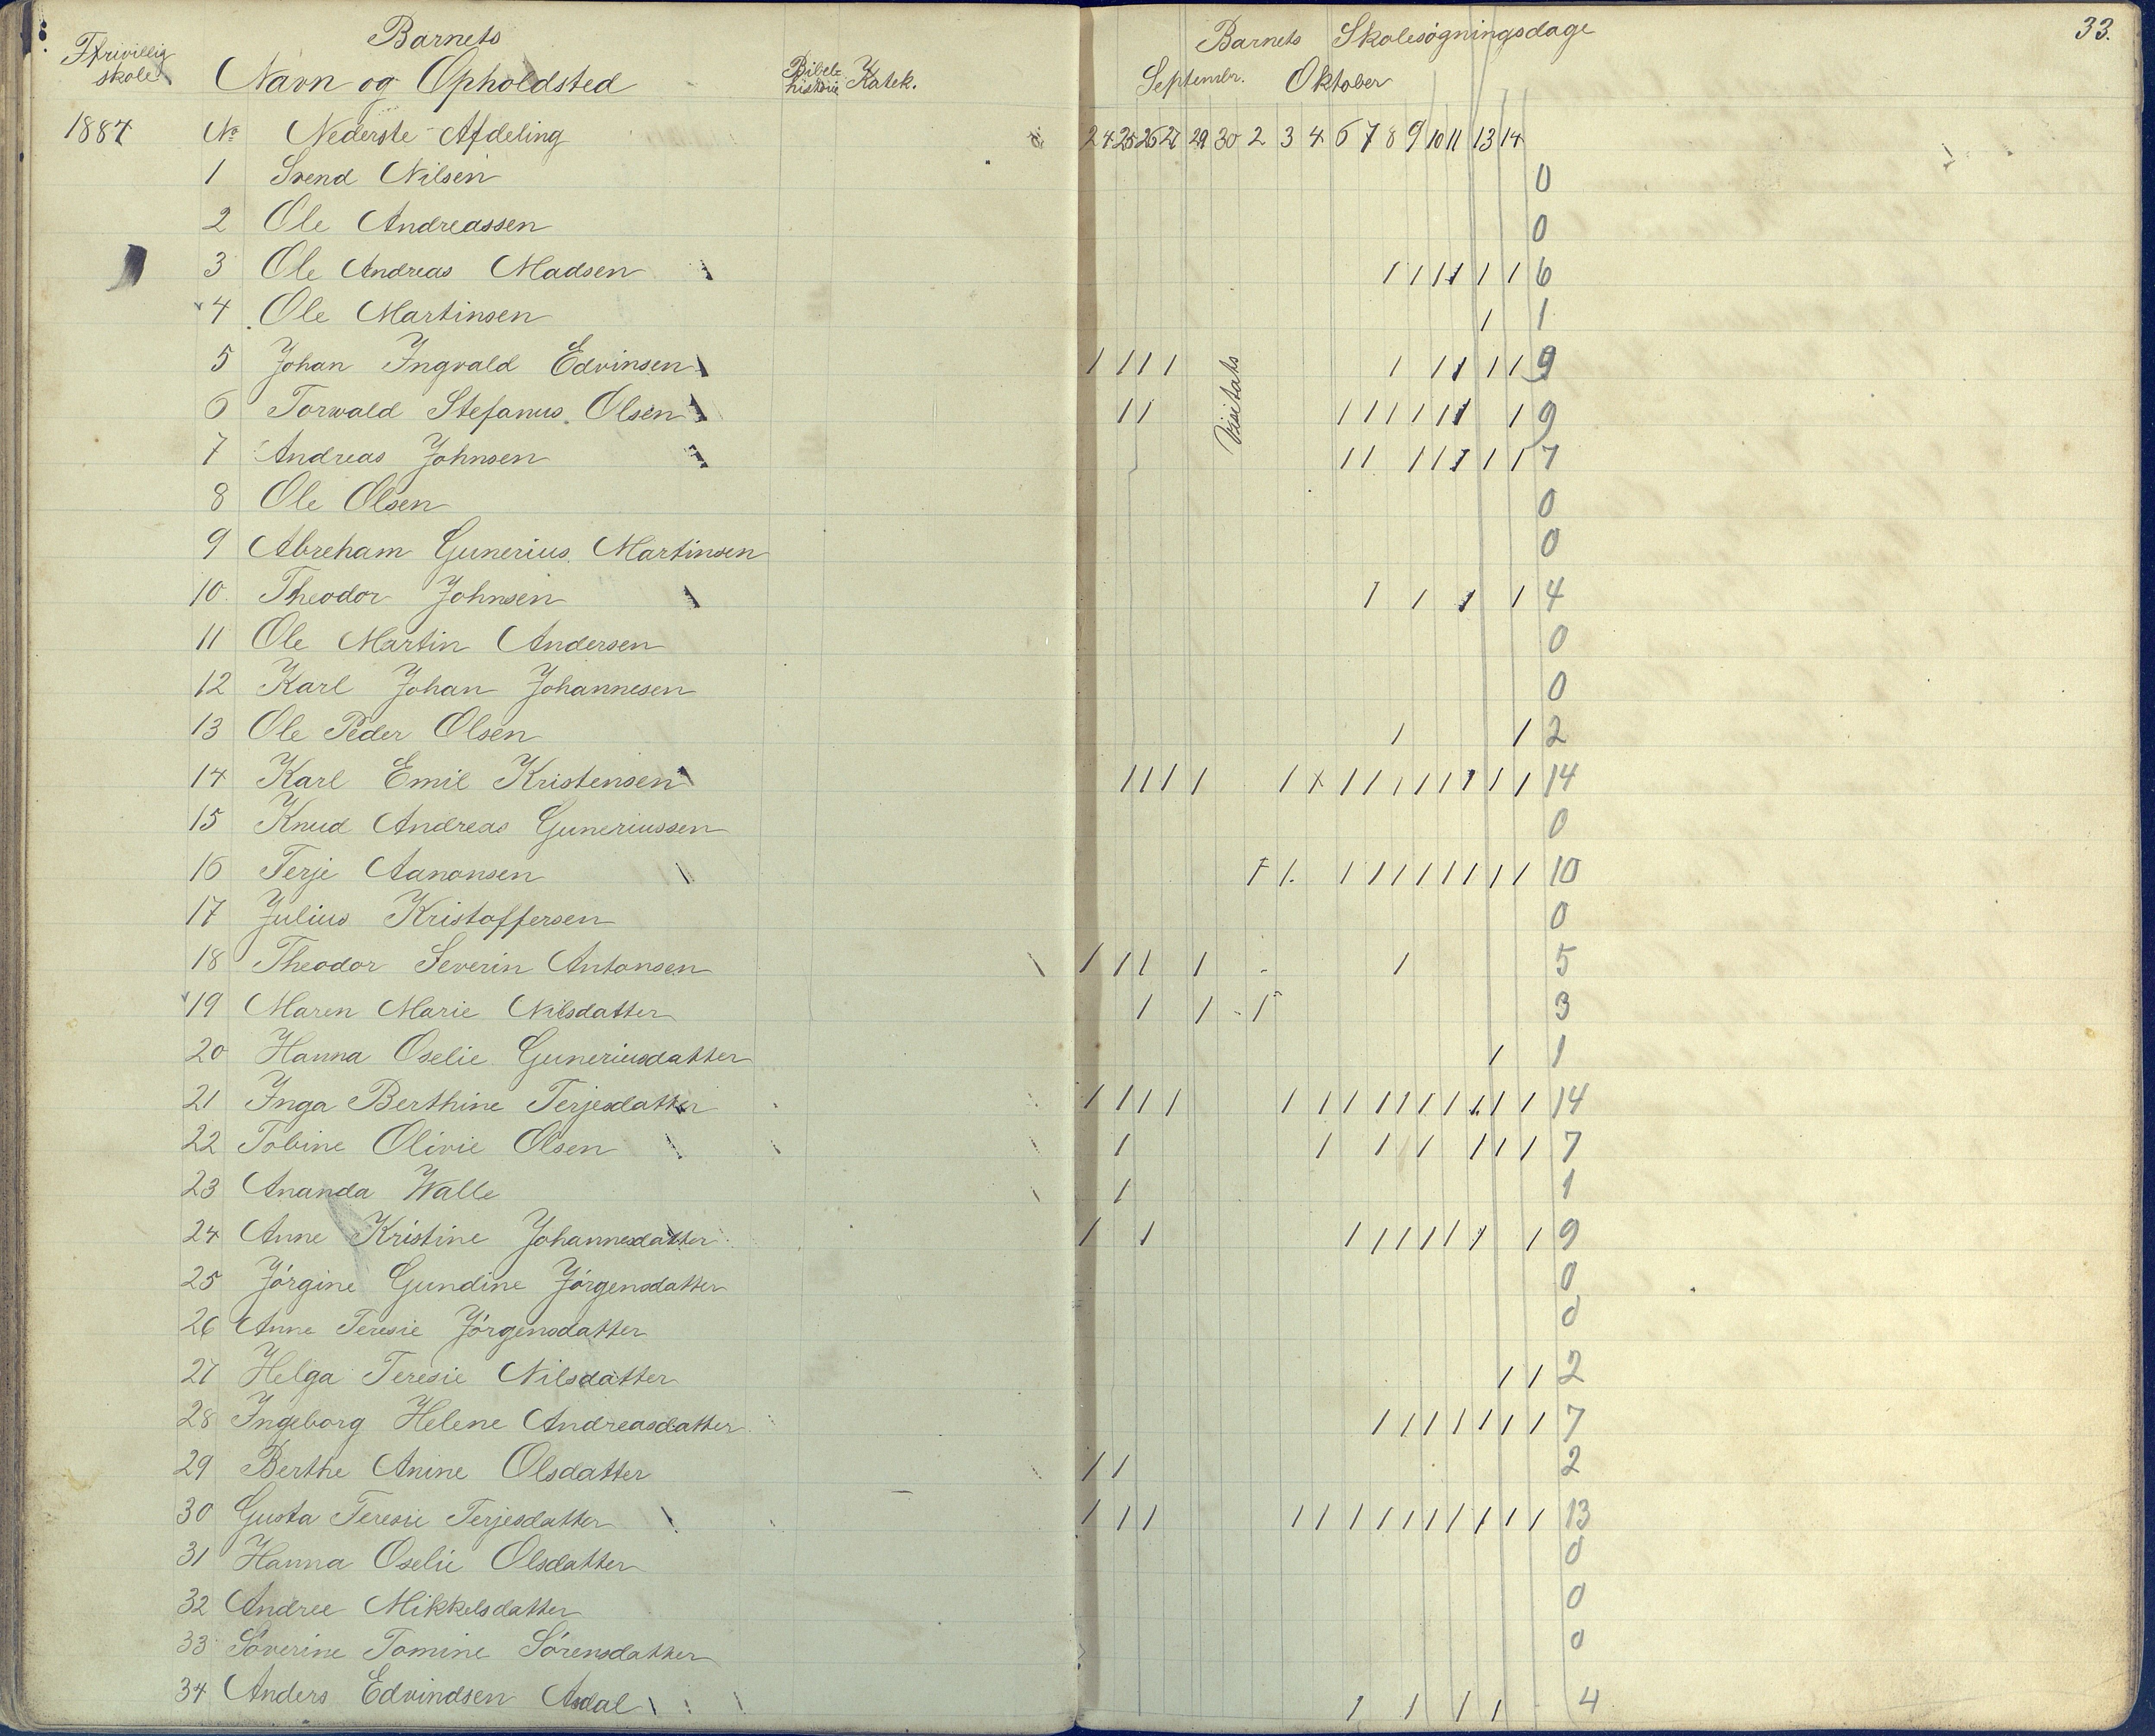 Frivillig skole
Barnets
Navn og Opholdsted
Bibelhistorie Katek.
Barnets Skolesøgningsdage
33.
Septembr. Oktober
1884 No Nederste Afdeling 24 25 26 27 29 30 2 3 4 6 7 8 9 10 11 13 14
1 Svend Nilsen 0
2 Ole Andreassen 0
3 Ole Andreas Madsen \ 1 1 1 1 1 1 6
4 Ole Martinsen 1 1
5 Johan Ingvald Edvinsen \ 1 1 1 1 1 1 1 1 1 9
Visitats
6 Torvald Stefanus Olsen \ 1 1 1 1 1 1 1 1 1 9
7 Andreas Johnsen \ 1 1 1 1 1 1 1 7
8 Ole Olsen 0
9 Abreham Gunerius Martinsen 0
10 Theodor Johnsen \ 1 1 1 1 4
11 Ole Martin Andersen 0
12 Karl Johan Johannesen 0
13 Ole Peder Olsen 1 1 2
14 Karl Emil Kristensen \ 1 1 1 1 1 1 1 1 1 1 1 1 1 1 14
15 Knud Andreas Guneriussen 0
16 Terje Aanonsen \ 1 1 1 1 1 1 1 1 1 1 10
17 Julius Kristoffersen 0
18 Theodor Severin Antonsen \ 1 1 1 1 1 5
19 Maren Marie Nilsdatter 1 1 1 3
20 Hanna Oselie Guneriusdatter 1 1
21 Inga Berthine Terjesdatter 1 1 1 1 1 1 1 1 1 1 1 1 1 1 14
22 Tobine Olivie Olsen \ \ \ 1 1 1 1 1 1 1 7
23 Ananda Walle \ 1 1
24 Anne Kristine Johannesdatter 1 1 1 1 1 1 1 1 1 9
25 Jørgine Gundine Jørgensdatter 0
26 Anne Teresie Jørgensdatter 0
27 Helga Teresie Nilsdatter 1 1 2
28 Ingeborg Helene Andreasdatter 1 1 1 1 1 1 1 7
29 Berthe Anine Olsdatter \ 1 1 2
30 Gusta Teresie Terjesdatter \ 1 1 1 1 1 1 1 1 1 1 1 1 1 13
31 Hanna Oselie Olsdatter 0
32 Andree Mikkelsdatter 0
33 Søverine Tomine Sørensdatter 0
34 Anders Edvindsen Asdal \ \ 1 1 1 1 4